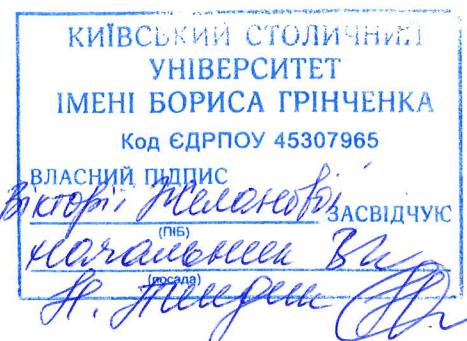 КИЇВСЬКИЙ СТОЛИЧНИЙ
УНІВЕРСИТЕТ
ІМЕНІ БОРИСА ГРІНЧЕНКА
Код ЄДРПОУ 45307965
ВЛАСНИЙ ПІДПИС
Вікторії Желанової ЗАСВІДЧУЮ
(ПІБ)
начальник
(посада)
Н.